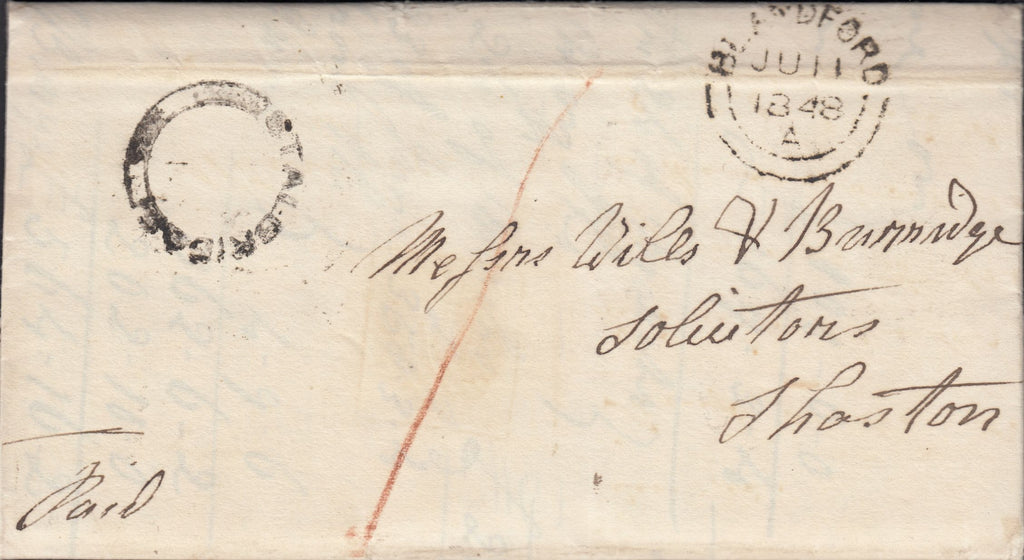 BLANDFORD
JU 11
1848
A
STALBRIDGE
Messrs Wiles & Burridge
Solicitors
Shaston
Paid